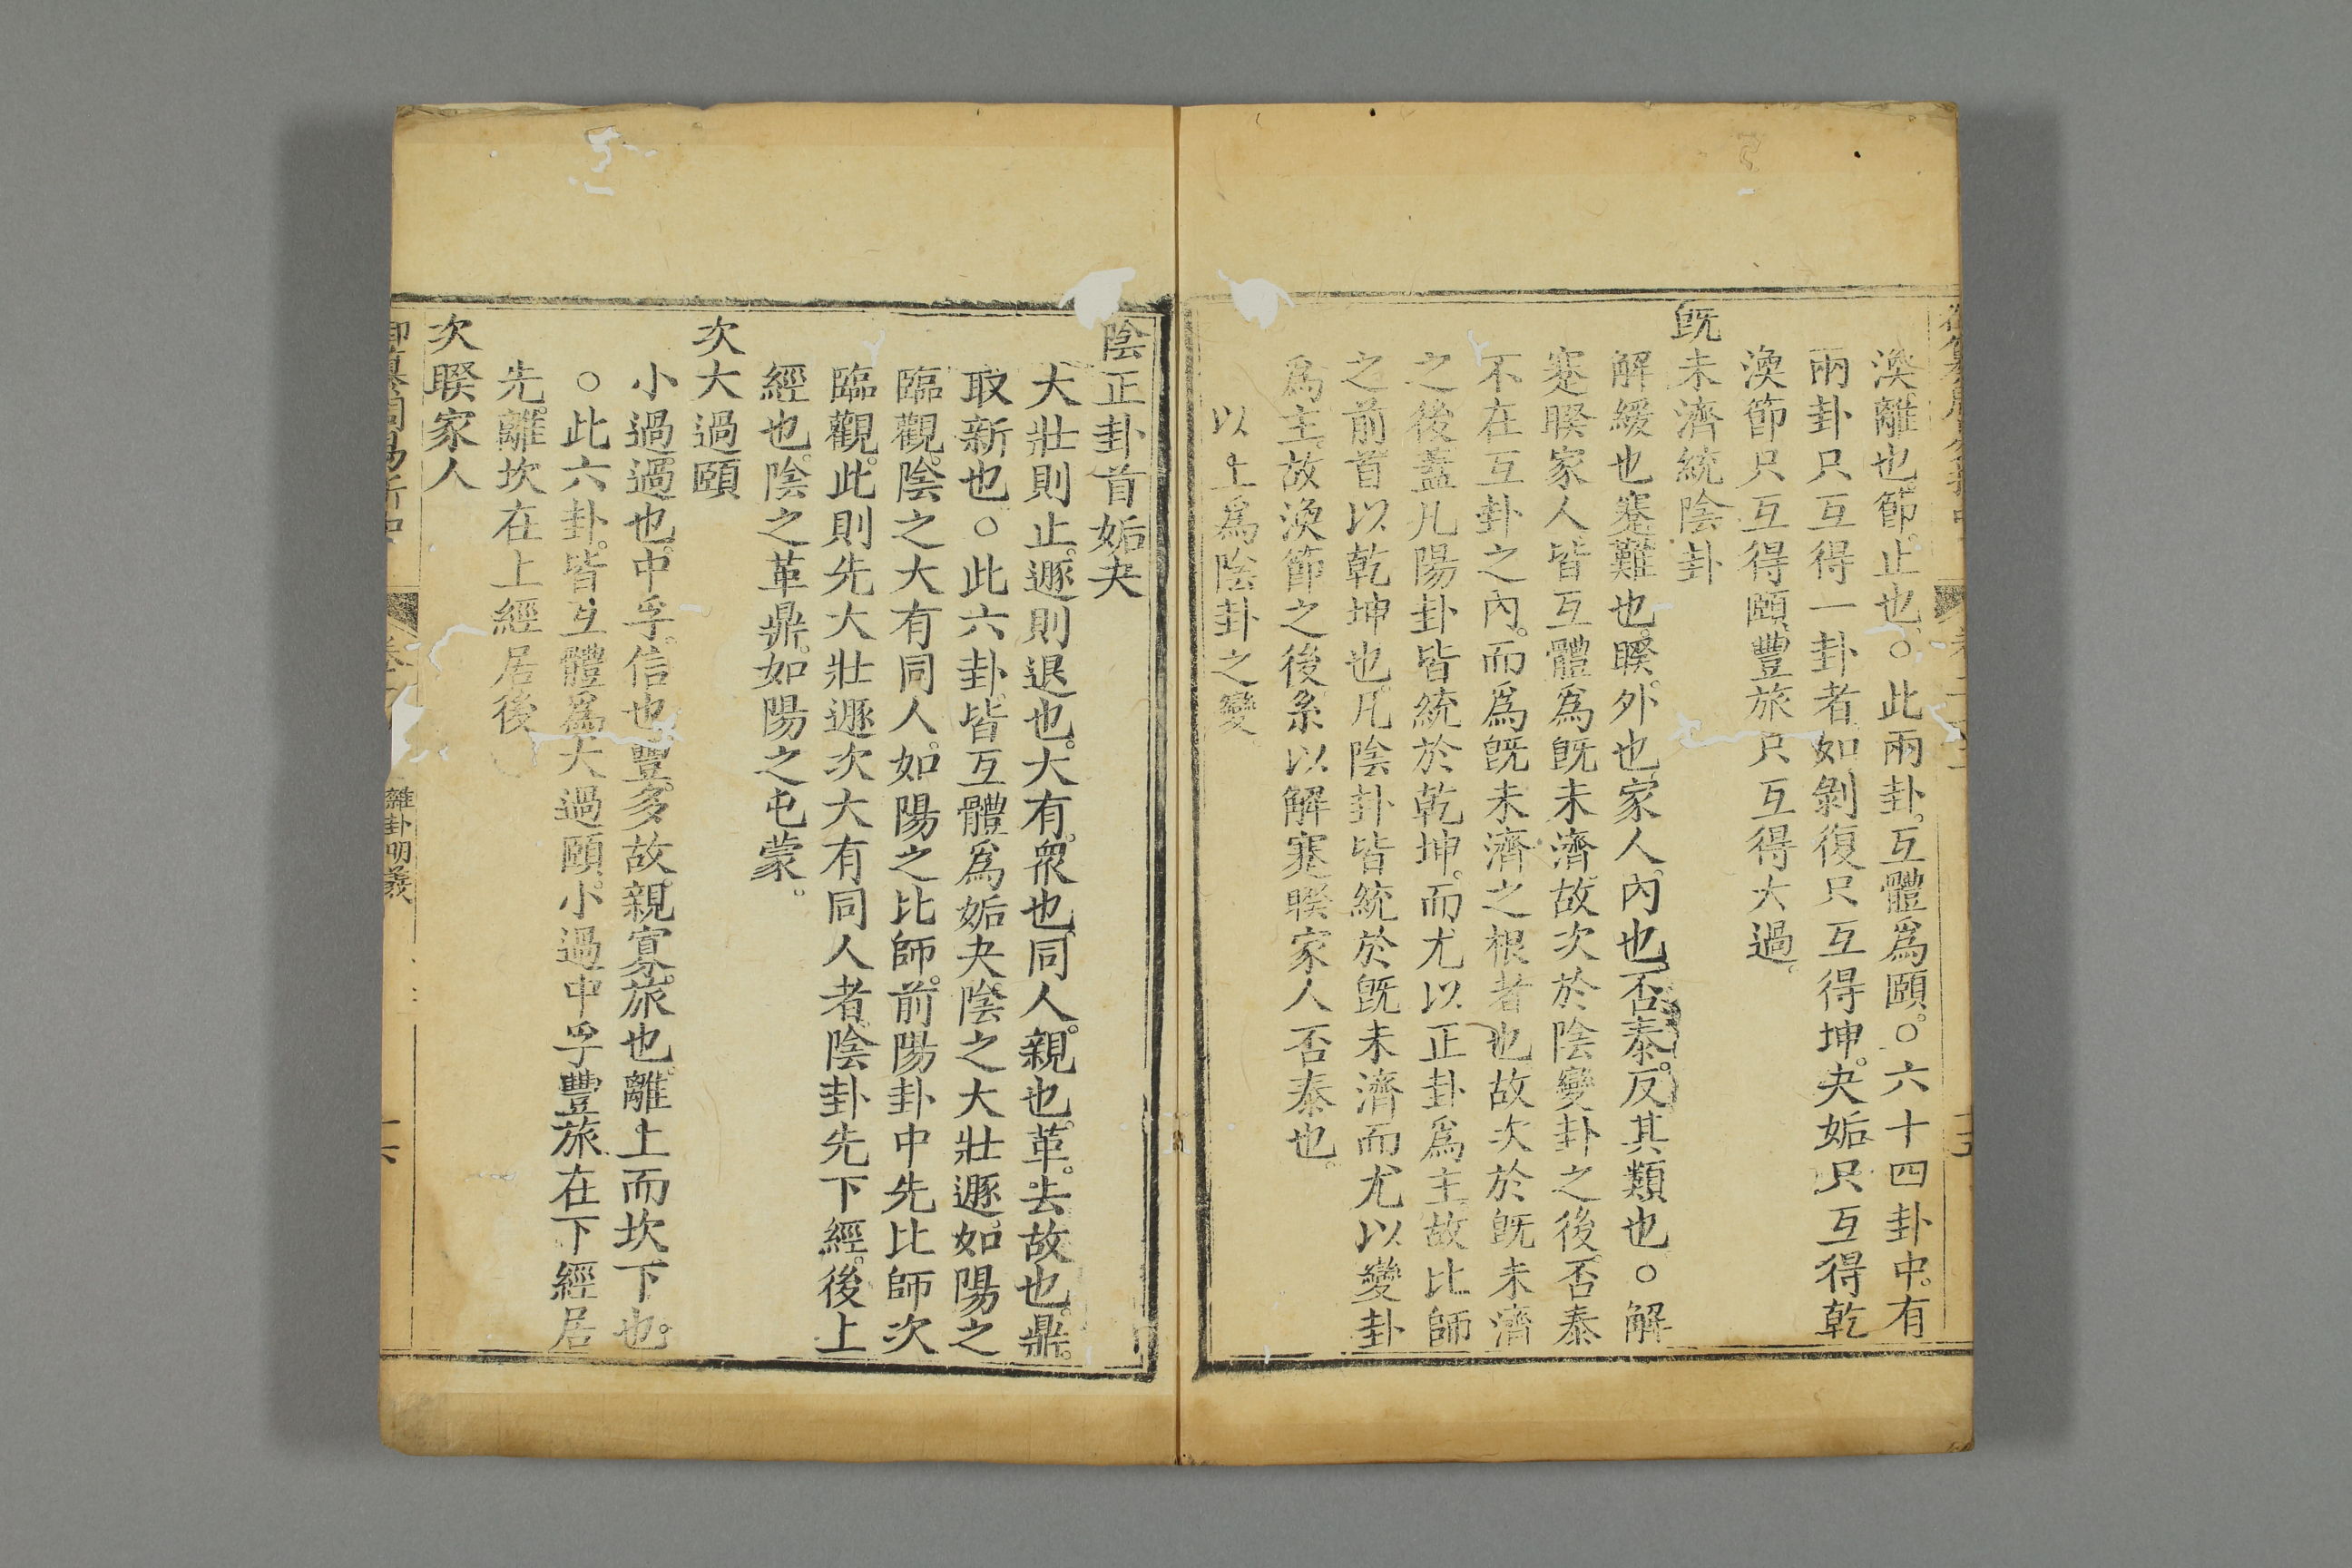 渙。離也。節。止也。○此兩卦。互體爲頤。○六十四卦中。有
兩卦只互得一卦者。如剝復只互得坤。夬姤只互得乾
渙節只互得頤。豐旅只互得大過。
旣未濟統陰卦
解緩也。蹇難也。睽。外也。家人。內也。否泰。反其類也。○解
蹇睽家人。皆互體爲旣未濟。故次於陰變卦之後。否泰
不在互卦之內。而爲旣未濟之根者也。故次於旣未濟
之後。蓋凡陽卦皆統於乾坤。而尤以正卦爲主。故比師
之前首以乾坤也。凡陰卦皆統於旣未濟而尤以變卦
爲主。故渙節之後系以解蹇睽家人否泰也。
以上爲陰卦之變
陰正卦首姤夬
大壯則止。遯則退也。大有。衆也。同人。親也。革。去故也。鼎。
取新也。○此六卦。皆互體爲姤夬。陰之大壯遯。如陽之
臨觀。陰之大有同人。如陽之比師。前陽卦中先比師次
臨觀。此則先大壯遯次大有同人者。陰卦先下經。後上
經也。陰之革鼎。如陽之屯蒙。
次大過頤
小過。過也。中孚。信也。豐。多故。親寡。旅也。離。上而坎下也。
○此六卦。皆互體爲大過頤。小過中孚豐旅在下經居
先。離坎在上經居後
次睽家人
雜卦明義